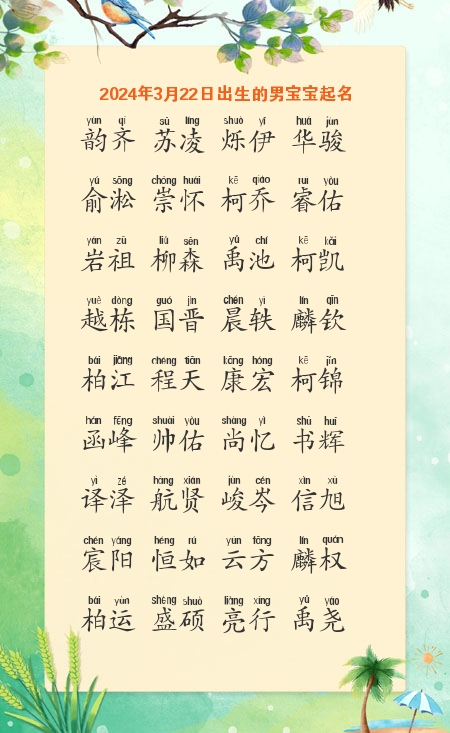 2024年3月22日出生的男宝宝起名
yùn qí sū líng shuò yī huá jùn
韵齐 苏凌 烁伊 华骏
yú sōng chóng huái kē qiáo ruì yòu
俞淞 崇怀 柯乔 睿佑
yán zǔ liǔ sēn yǔ chí kē kǎi
岩祖 柳森 禹池 柯凯
yuè dòng guó jìn chén yì lín qīn
越栋 国晋 晨轶 麟钦
bǎi jiāng chéng tiān kāng hóng kē jǐn
柏江 程天 康宏 柯锦
hán fēng shuài yòu shàng yì shū huī
函峰 帅佑 尚忆 书辉
yì zé háng xián jùn cén xìn xù
译泽 航贤 峻岑 信旭
chén yáng héng rú yún fāng lín quán
宸阳 恒如 云方 麟权
bǎi yùn shèng shuò liàng xíng yǔ yáo
柏运 盛硕 亮行 禹尧